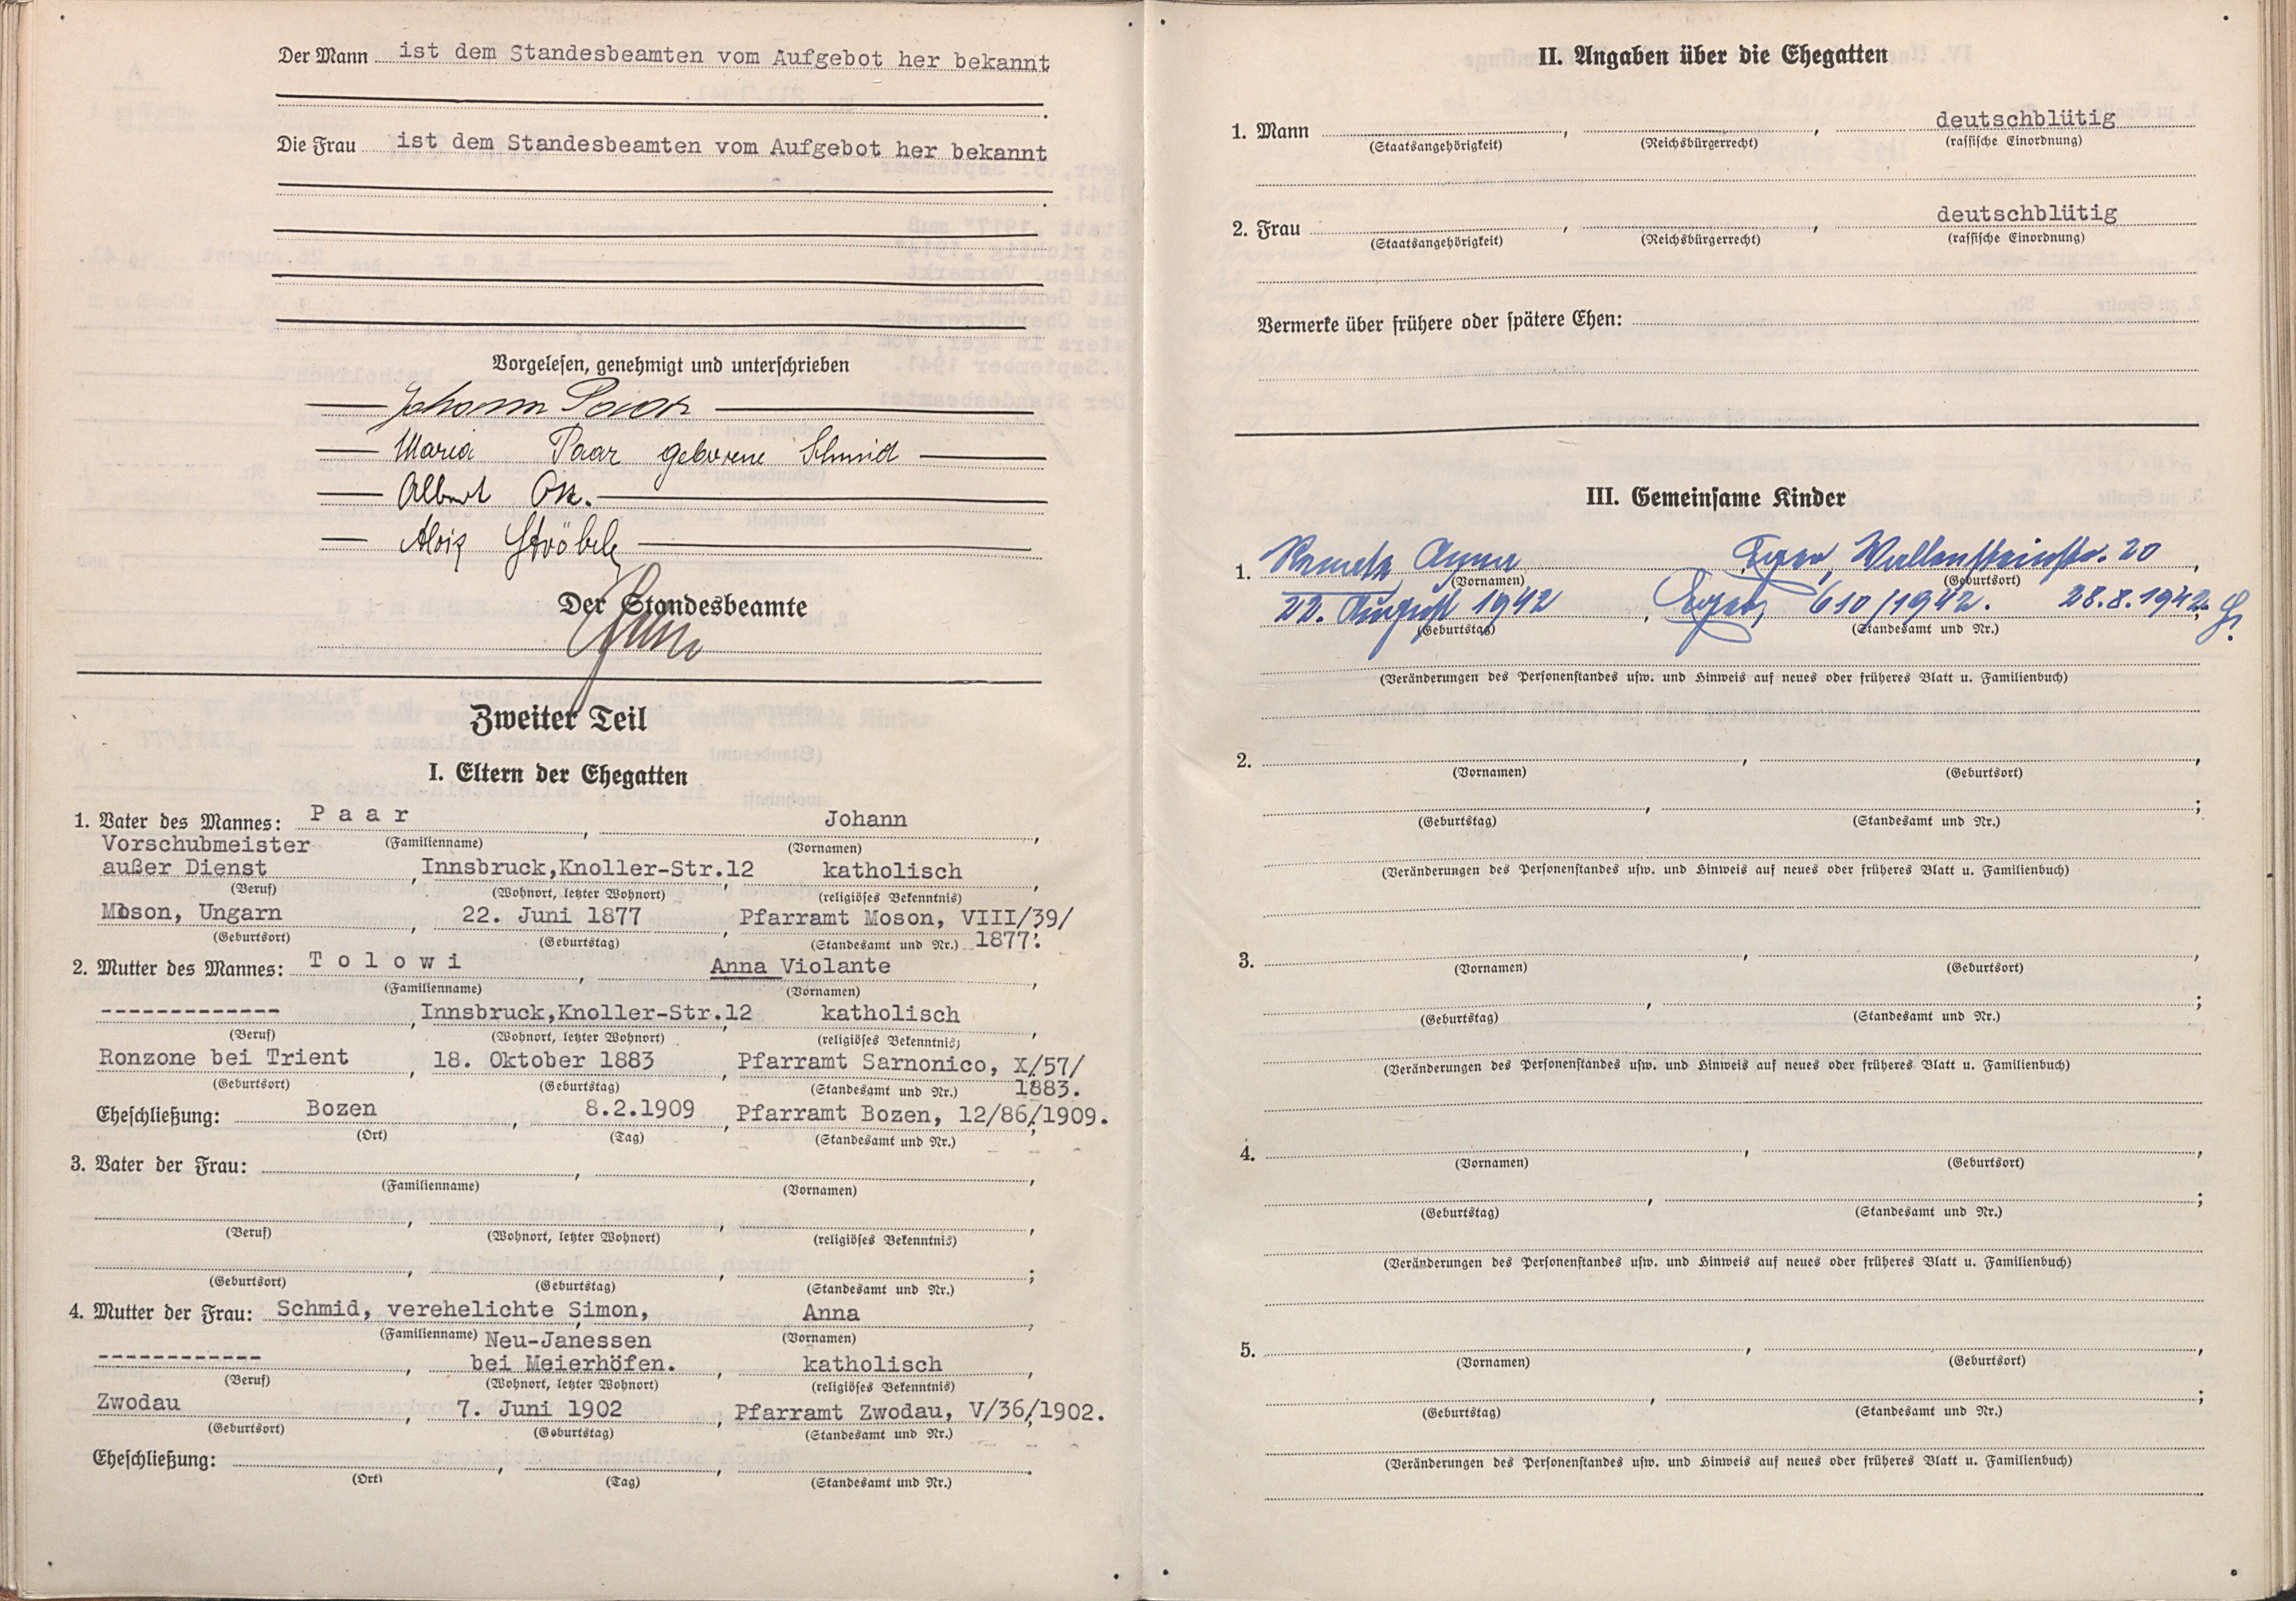 Der Mann ist dem Standesbeamten vom Aufgebot her bekannt
Die Frau ist dem Standesbeamten vom Aufgebot her bekannt
Vorgelesen, genehmigt und unterschrieben
Johann Paar
Maria Paar geborene Schmid
Albert Ott.
Alois Ströbele
Der Standesbeamte
Zweiter Teil
I. Eltern der Ehegatten
1. Vater des Mannes: Paar, Johann,
(Familienname) (Vornamen)
Vorschubmeister
außer Dienst, Innsbruck,Knoller-Str.12, katholisch,
(Beruf) (Wohnort, letzter Wohnort) (religiöses Bekenntnis)
Moson, Ungarn, 22. Juni 1877, Pfarramt Moson, VIII/39/
(Geburtsort) (Geburtstag) (Standesamt und Nr.) 1877;
2. Mutter des Mannes: Tolowi, Anna Violante,
(Familienname) (Vornamen)
-------------, Innsbruck,Knoller-Str.12, katholisch,
(Beruf) (Wohnort, letzter Wohnort) (religiöses Bekenntnis)
Ronzone bei Trient, 18. Oktober 1883, Pfarramt Sarnonico, X/57/
(Geburtsort) (Geburtstag) (Standesamt und Nr.) 1883.
Eheschließung: Bozen, 8.2.1909, Pfarramt Bozen, 12/86/1909.
(Ort) (Tag) (Standesamt und Nr.)
3. Vater der Frau: , ,
(Familienname) (Vornamen)
(Beruf) (Wohnort, letzter Wohnort) (religiöses Bekenntnis)
(Geburtsort) (Geburtstag) (Standesamt und Nr.)
4. Mutter der Frau: Schmid, verehelichte Simon, Anna,
(Familienname) (Vornamen)
Neu-Janessen
------------, bei Meierhöfen., katholisch,
(Beruf) (Wohnort, letzter Wohnort) (religiöses Bekenntnis)
Zwodau, 7. Juni 1902, Pfarramt Zwodau, V/36/1902.
(Geburtsort) (Geburtstag) (Standesamt und Nr.)
Eheschließung: , , .
(Ort) (Tag) (Standesamt und Nr.)
II. Angaben über die Ehegatten
1. Mann , , deutschblütig
(Staatsangehörigkeit) (Reichsbürgerrecht) (rassische Einordnung)
2. Frau , , deutschblütig
(Staatsangehörigkeit) (Reichsbürgerrecht) (rassische Einordnung)
Vermerke über frühere oder spätere Ehen:
III. Gemeinsame Kinder
1. Renate Anna Eger, Wallensteinstr. 20,
(Vornamen) (Geburtsort)
22. August 1942, Eger, 610/1942. 28.8.1942.
(Geburtstag) (Standesamt und Nr.)
(Veränderungen des Personenstandes usw. und Hinweis auf neues oder früheres Blatt u. Familienbuch)
2. , ,
(Vornamen) (Geburtsort)
, ;
(Geburtstag) (Standesamt und Nr.)
(Veränderungen des Personenstandes usw. und Hinweis auf neues oder früheres Blatt u. Familienbuch)
3. , ,
(Vornamen) (Geburtsort)
, ;
(Geburtstag) (Standesamt und Nr.)
(Veränderungen des Personenstandes usw. und Hinweis auf neues oder früheres Blatt u. Familienbuch)
4. , ,
(Vornamen) (Geburtsort)
, ;
(Geburtstag) (Standesamt und Nr.)
(Veränderungen des Personenstandes usw. und Hinweis auf neues oder früheres Blatt u. Familienbuch)
5. , ,
(Vornamen) (Geburtsort)
, ;
(Geburtstag) (Standesamt und Nr.)
(Veränderungen des Personenstandes usw. und Hinweis auf neues oder früheres Blatt u. Familienbuch)